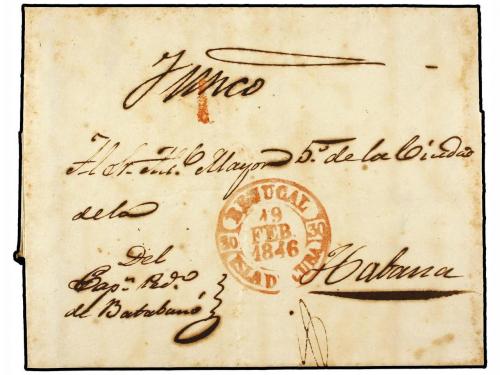 Franco
1
Al Sr. Alc.e Mayor 5.º de la Ciudad
de la
Habana
Del
Cap.n Ped.o
de Batabanó
BEJUCAL
19
FEB.
1846
30
30
ISLA D CUBA